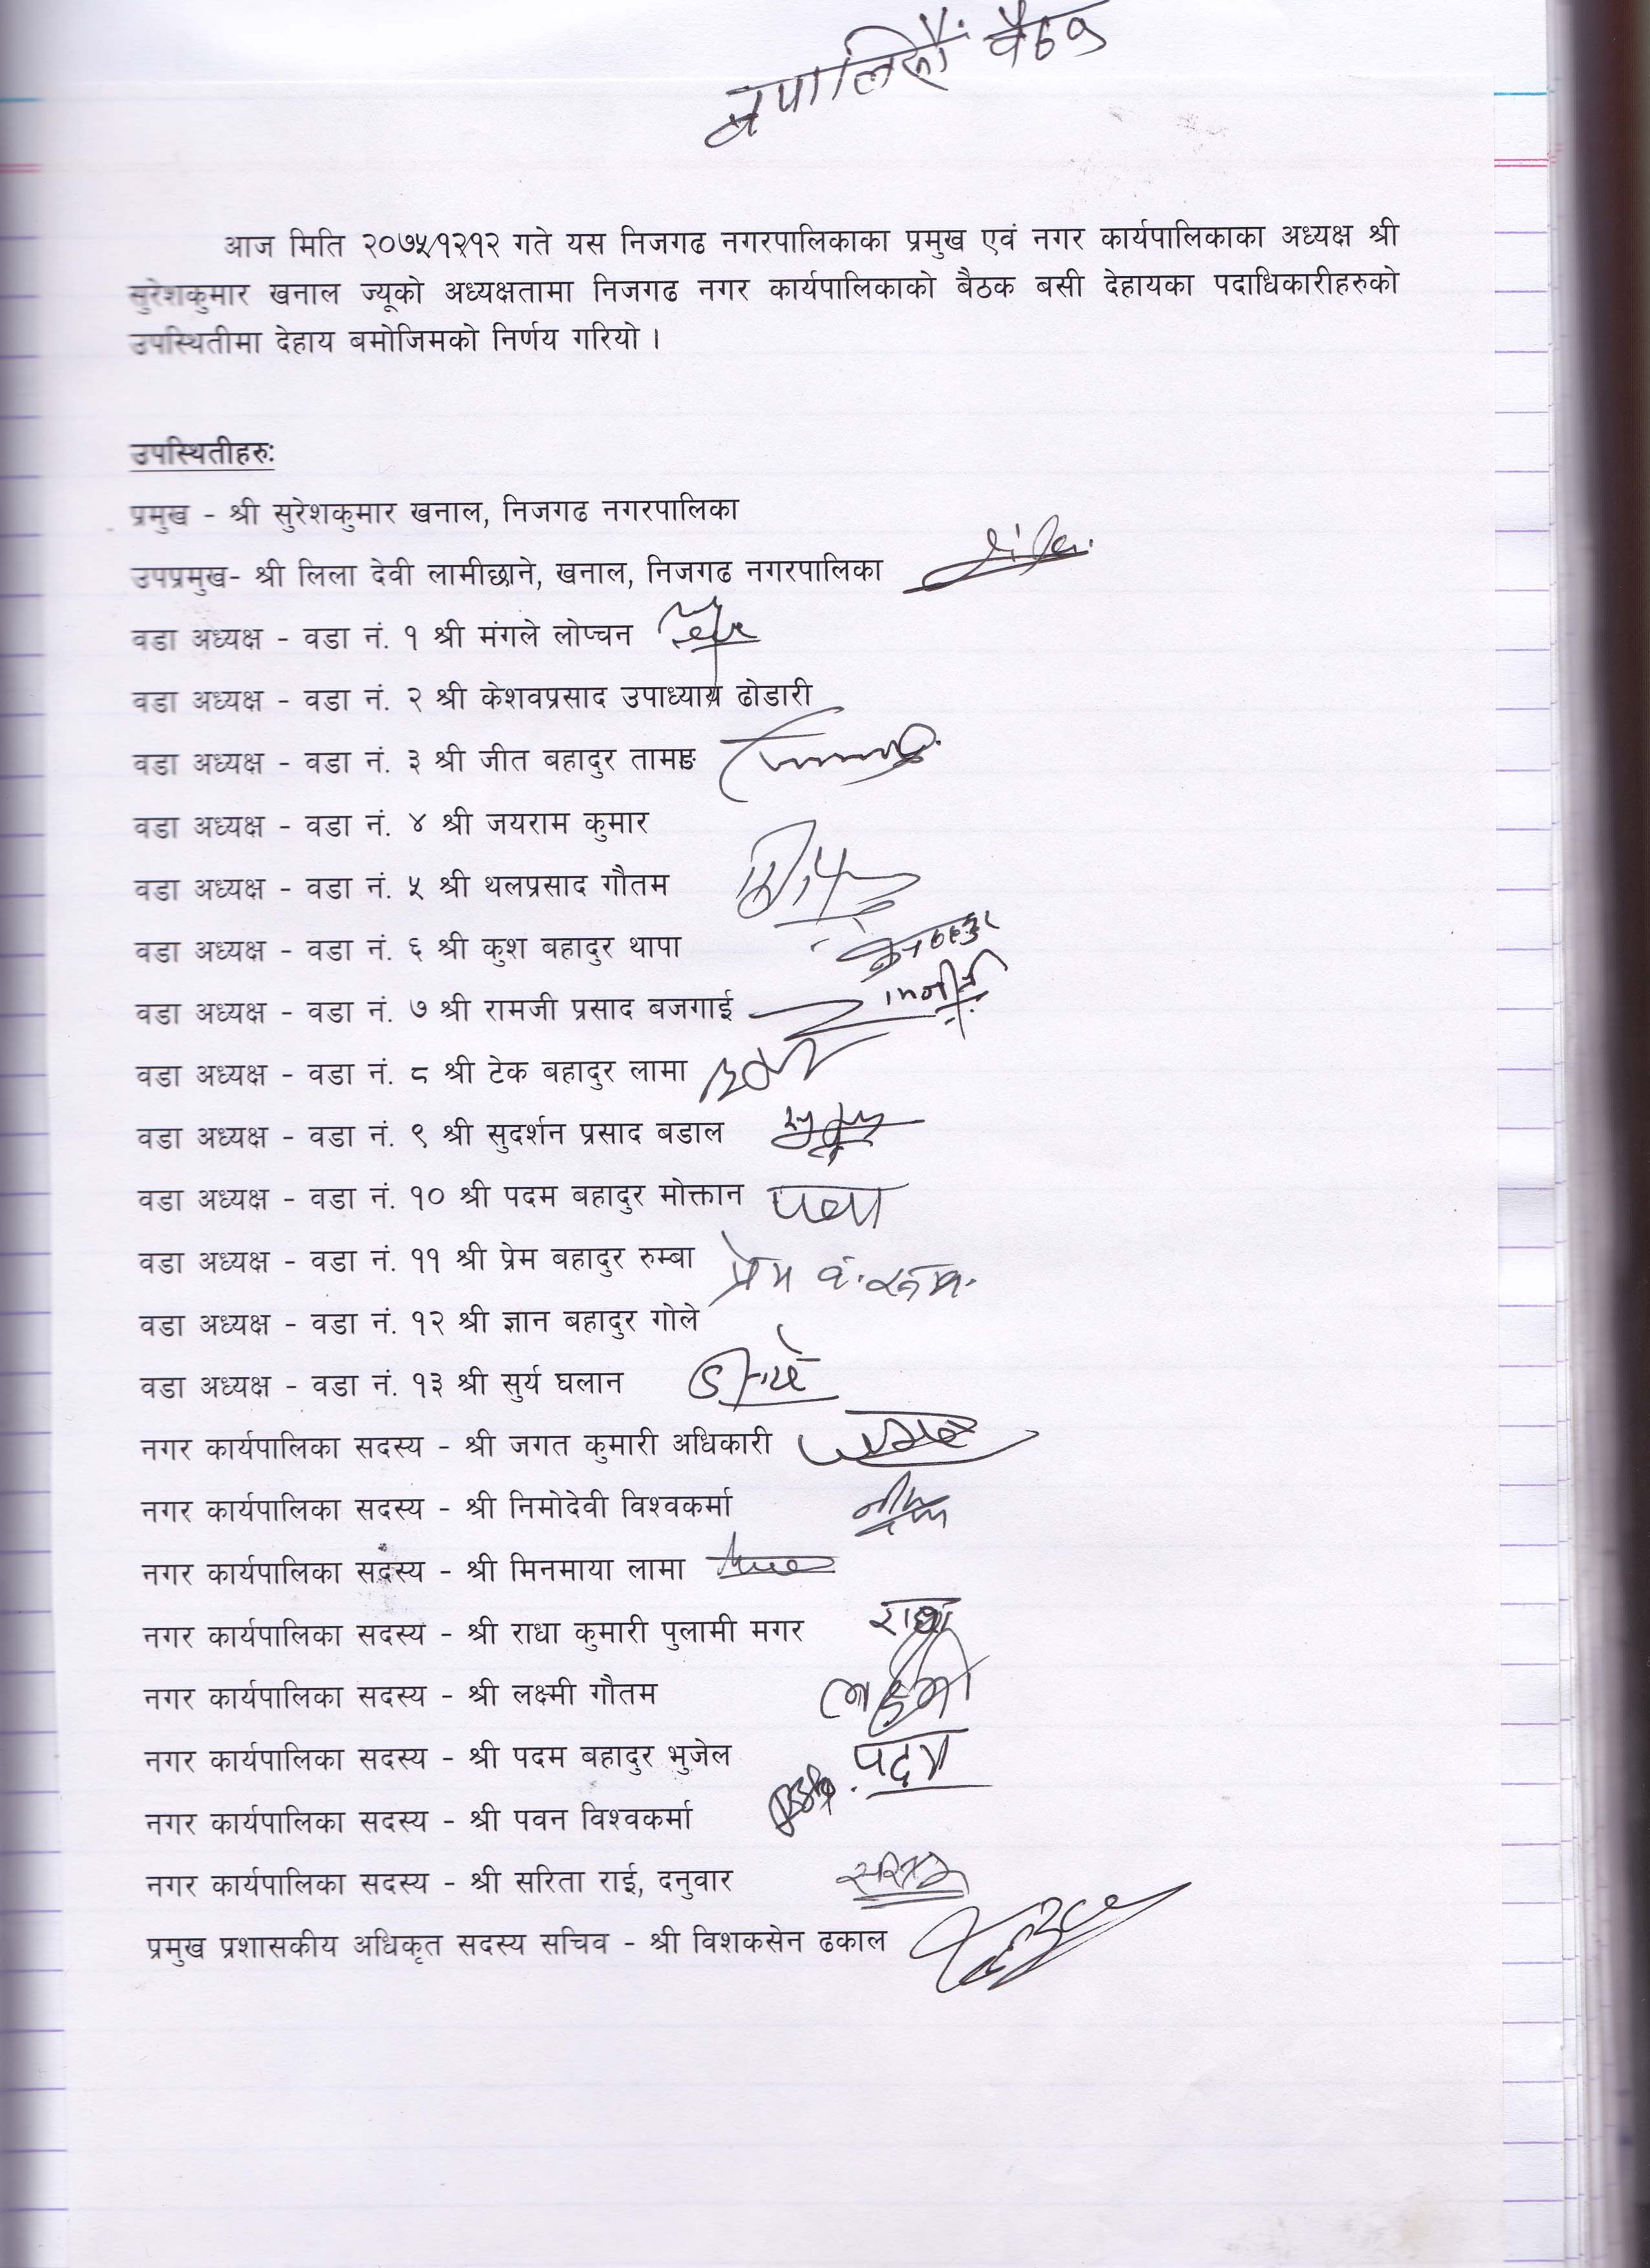 बैठक
आज मिति २०७५।१२।१२ गते यस निजगढ नगरपालिकाका प्रमुख एवं नगर कार्यपालिकाका अध्यक्ष श्री
सुरेशकुमार खनाल ज्यूको अध्यक्षतामा निजगढ नगर कार्यपालिकाको बैठक बसी देहायका पदाधिकारीहरुको
उपस्थितीमा देहाय बमोजिमको निर्णय गरियो ।
उपस्थितीहरुः
प्रमुख - श्री सुरेशकुमार खनाल, निजगढ नगरपालिका
उपप्रमुख- श्री लिला देवी लामीछाने, खनाल, निजगढ नगरपालिका
वडा अध्यक्ष - वडा नं. १ श्री मंगले लोप्चन
वडा अध्यक्ष - वडा नं. २ श्री केशवप्रसाद उपाध्याय ढोडारी
वडा अध्यक्ष - वडा नं. ३ श्री जीत बहादुर तामाङ
वडा अध्यक्ष - वडा नं. ४ श्री जयराम कुमार
वडा अध्यक्ष - वडा नं. ५ श्री थलप्रसाद गौतम
वडा अध्यक्ष - वडा नं. ६ श्री कुश बहादुर थापा
वडा अध्यक्ष - वडा नं. ७ श्री रामजी प्रसाद बजगाई
वडा अध्यक्ष - वडा नं. ८ श्री टेक बहादुर लामा
वडा अध्यक्ष - वडा नं. ९ श्री सुदर्शन प्रसाद बडाल
वडा अध्यक्ष - वडा नं. १० श्री पदम बहादुर मोक्तान
वडा अध्यक्ष - वडा नं. ११ श्री प्रेम बहादुर रुम्बा प्रेम व.
वडा अध्यक्ष - वडा नं. १२ श्री ज्ञान बहादुर गोले
वडा अध्यक्ष - वडा नं. १३ श्री सुर्य घलान
नगर कार्यपालिका सदस्य - श्री जगत कुमारी अधिकारी
नगर कार्यपालिका सदस्य - श्री निमोदेवी विश्वकर्मा
नगर कार्यपालिका सदस्य - श्री मिनमाया लामा
नगर कार्यपालिका सदस्य - श्री राधा कुमारी पुलामी मगर राधा
नगर कार्यपालिका सदस्य - श्री लक्ष्मी गौतम
नगर कार्यपालिका सदस्य - श्री पदम बहादुर भुजेल पदम
नगर कार्यपालिका सदस्य - श्री पवन विश्वकर्मा
नगर कार्यपालिका सदस्य - श्री सरिता राई, दनुवार
प्रमुख प्रशासकीय अधिकृत सदस्य सचिव - श्री विशकसेन ढकाल